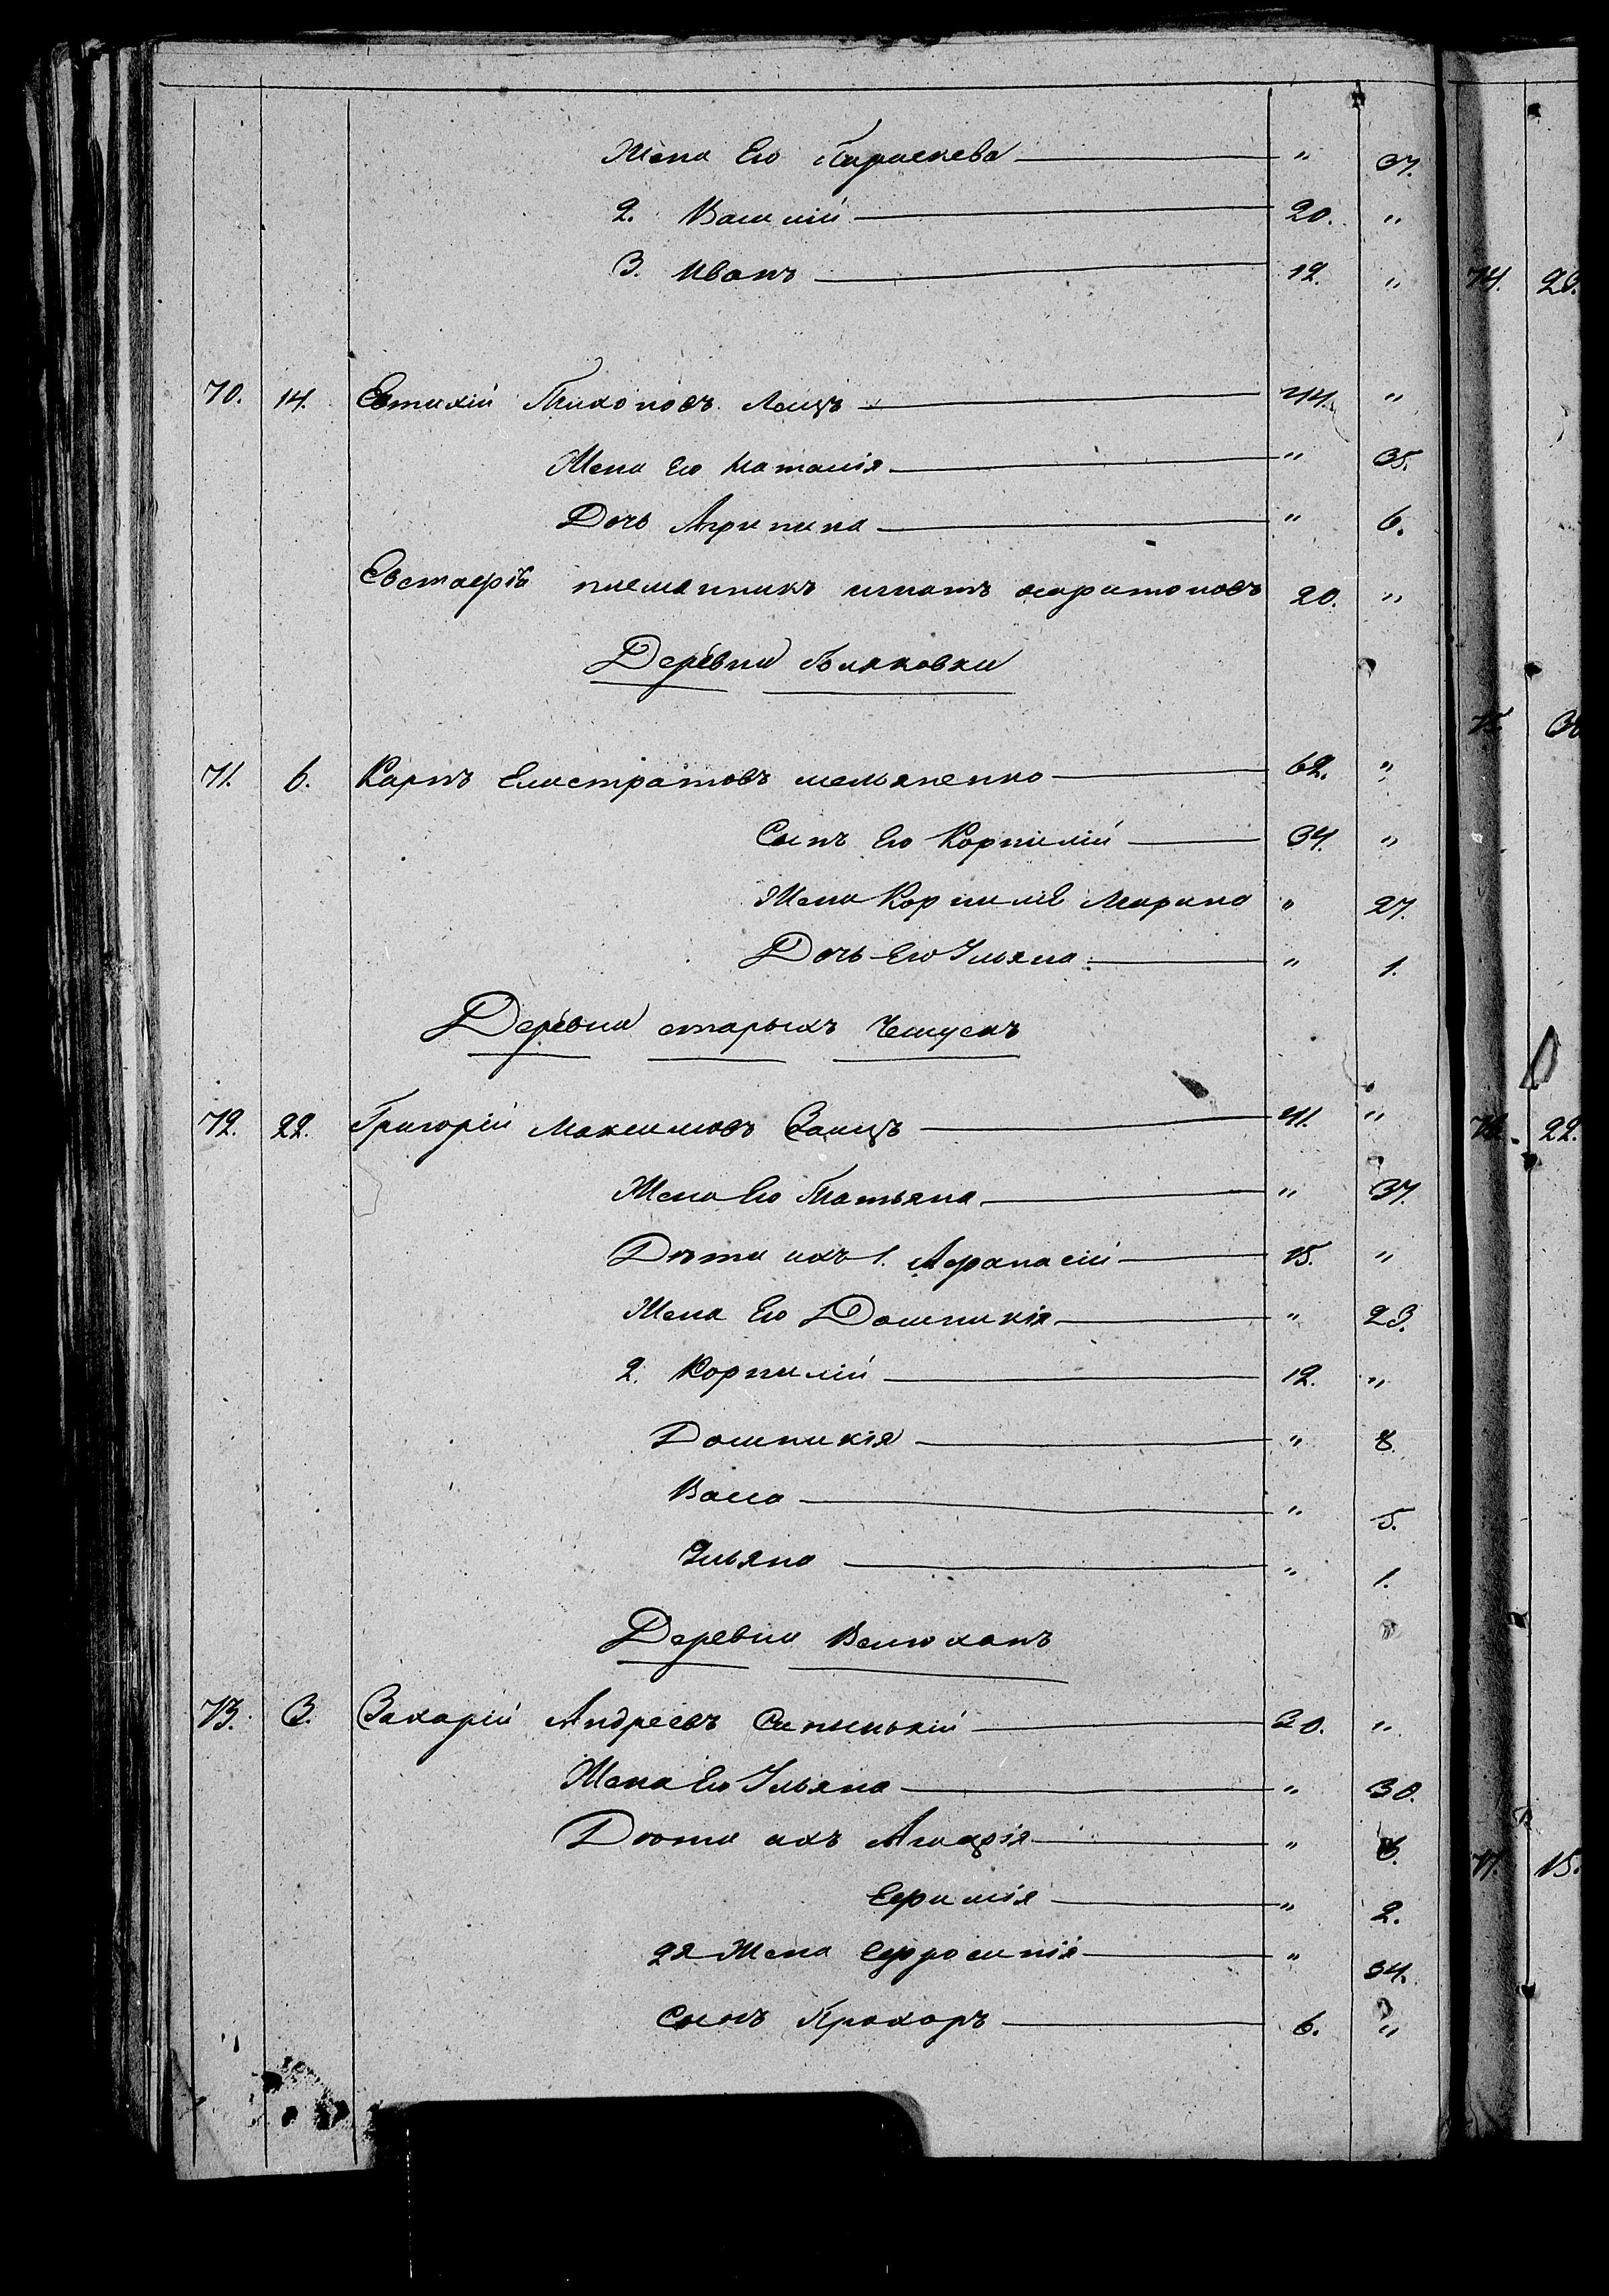 Жена Его Параскева " 37.
2. Василій 20. "
3. Иванъ 12. "
70. 14. Евтихій Тихоновъ Заецъ 44. "
Жена Его Наталія " 35.
Дочь Агрипина " 6.
племянникъ игнатъ харитоновъ 20. "
Деревни
71. 6. Карпъ Елистратовъ мельяненко 62. "
Сынъ Его Корнилій 34. "
Жена Корнилія Марина " 27.
Дочь Его Ульяна " 1.
Деревни старыхъ Чешуекъ
72. 22. Григорій Максимовъ Заецъ 41. "
Жена Его Татьяна " 37.
Дѣти ихъ 1. Афанасій 15. "
Жена Его Домникія " 23.
2. Корнилій 12. "
Домникія " 8
Васса " 5.
Ульяна " 1.
Деревни Велюханъ
73. 3. Захарій Андреевъ 30. "
Жена Его Ульяна " 30.
Дѣти ихъ Агафія " 6.
Ефимія " 2.
2я Жена Ефросинія " 34.
Сынъ Прохоръ 6. "